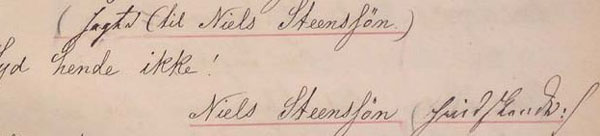 (sagte (til Niels Steenssön.)
lyd hende ikke!
Niels Steenssön (hvidskende:/